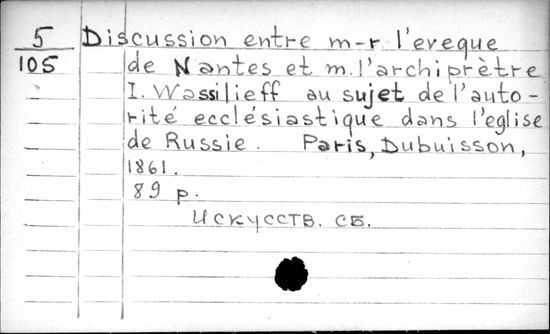 5
105
Discussion entre m-r l'eveque
de Nantes et m. l'archiprètre
I. Wassilieff au sujet de l'auto-
rité ecclésiastique dans l'eglise
de Russie. Paris, Dubuisson,
1861.
89 p.
Искусств. сб.